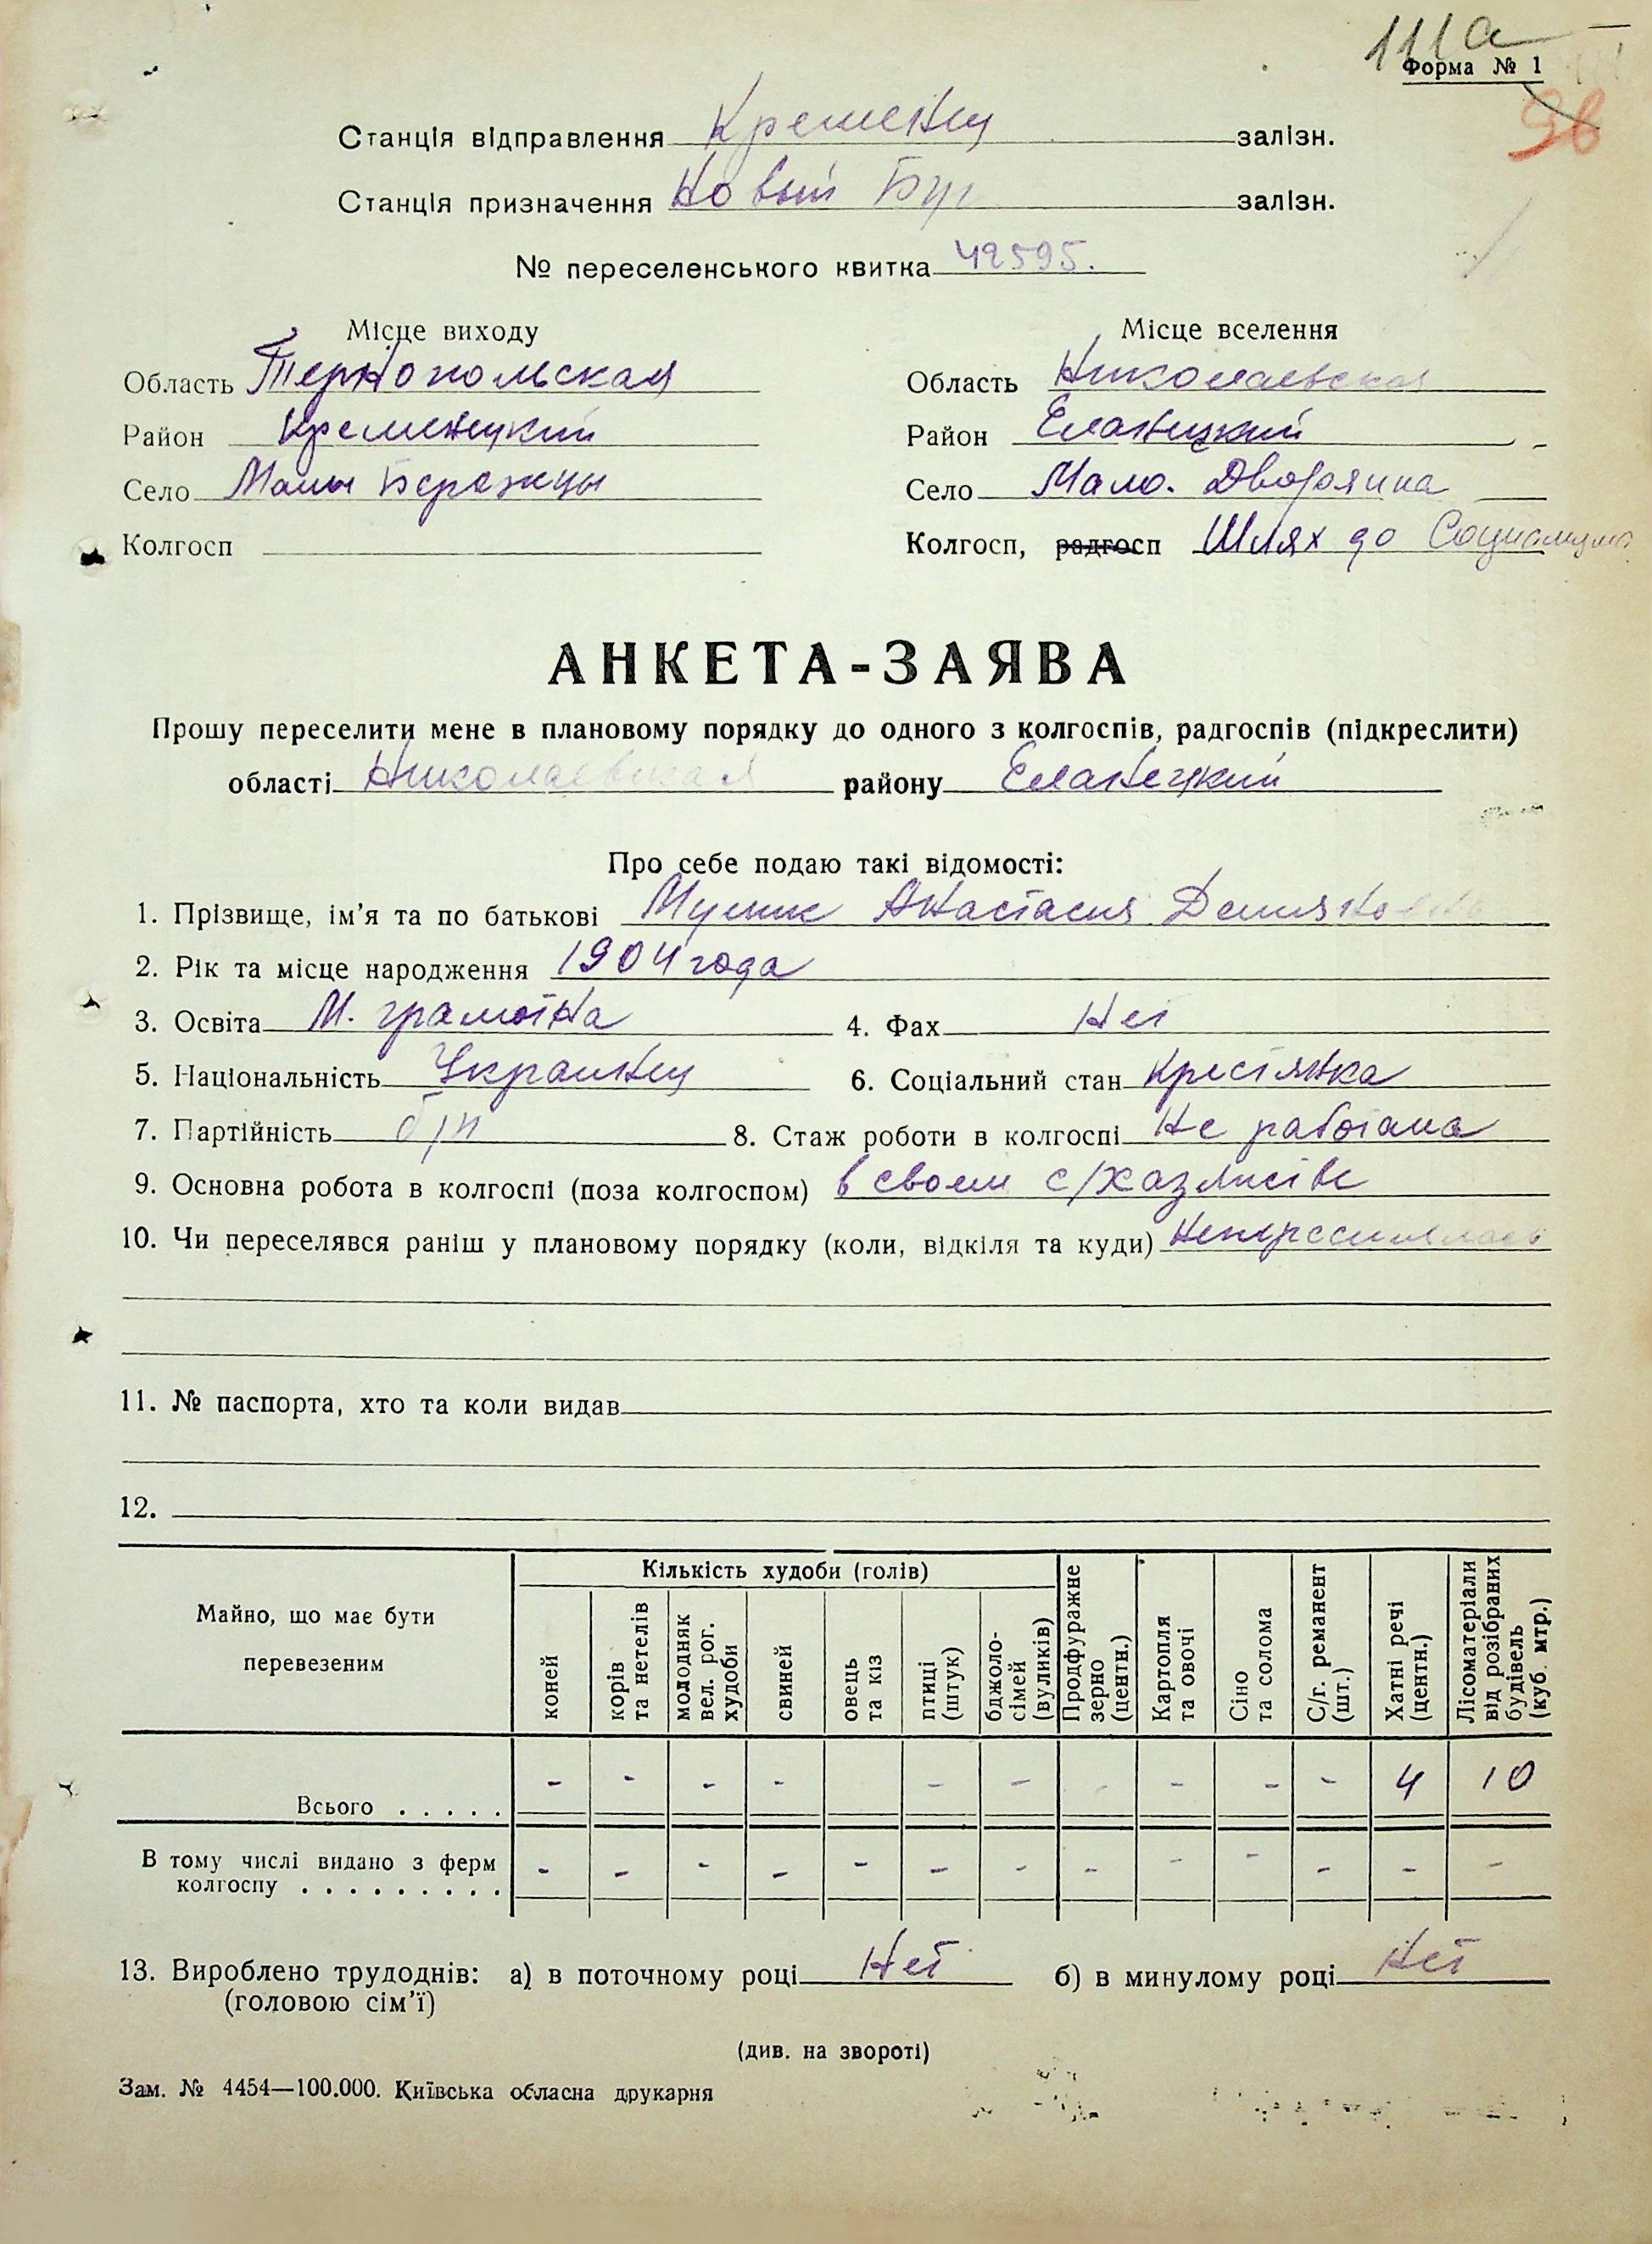 111а
Форма № 1
Станція відправлення Кременец залізн.
Станція призначення Новый Буг залізн.
№ переселенського квитка 42595.
Місце виходу Місце вселення
Область Тернопольская Область Николаевская
Район Кременецкий Район Еланецкий
Село Малы Бережцы Село Мало. Дворянка
Колгосп Колгосп, радгосп Шлях до Социализма
АНКЕТА-ЗАЯВА
Прошу переселити мене в плановому порядку до одного з колгоспів, радгоспів (підкреслити)
області Николаевская району Еланецкий
Про себе подаю такі відомості:
1. Прізвище, ім'я та по батькові Анастасия
2. Рік та місце народження 1904 года
3. Освіта М. грамотна 4. Фах Нет
5. Національність Украинец 6. Соціальний стан Крестянка
7. Партійність б/п 8. Стаж роботи в колгоспі Не работала
9. Основна робота в колгоспі (поза колгоспом) в своем с/хазяистве
10. Чи переселявся раніш у плановому порядку (коли, відкіля та куди) Непереселялась
11. № паспорта, хто та коли видав
12.
Майно, що має бути перевезеним
Кількість худоби (голів)
коней
корів та нетелів
молодняк вел. рог. худоби
свиней
овець та кіз
птиці (штук)
бджоло-сімей (вуликів)
Продфуражне зерно (центн.)
Картопля та овочі
Сіно та солома
С/г. реманент (шт.)
Хатні речі (центн.)
Лісоматеріали від розібраних будівель (куб. мтр.)
Всього ..... - - - - - - - - - - 4 10
В тому числі видано з ферм
колгоспу ......... - - - - - - - - - - - - -
13. Вироблено трудоднів: а) в поточному році Нет б) в минулому році Нет
(головою сім'ї)
(див. на звороті)
Зам. № 4454—100.000. Київська обласна друкарня